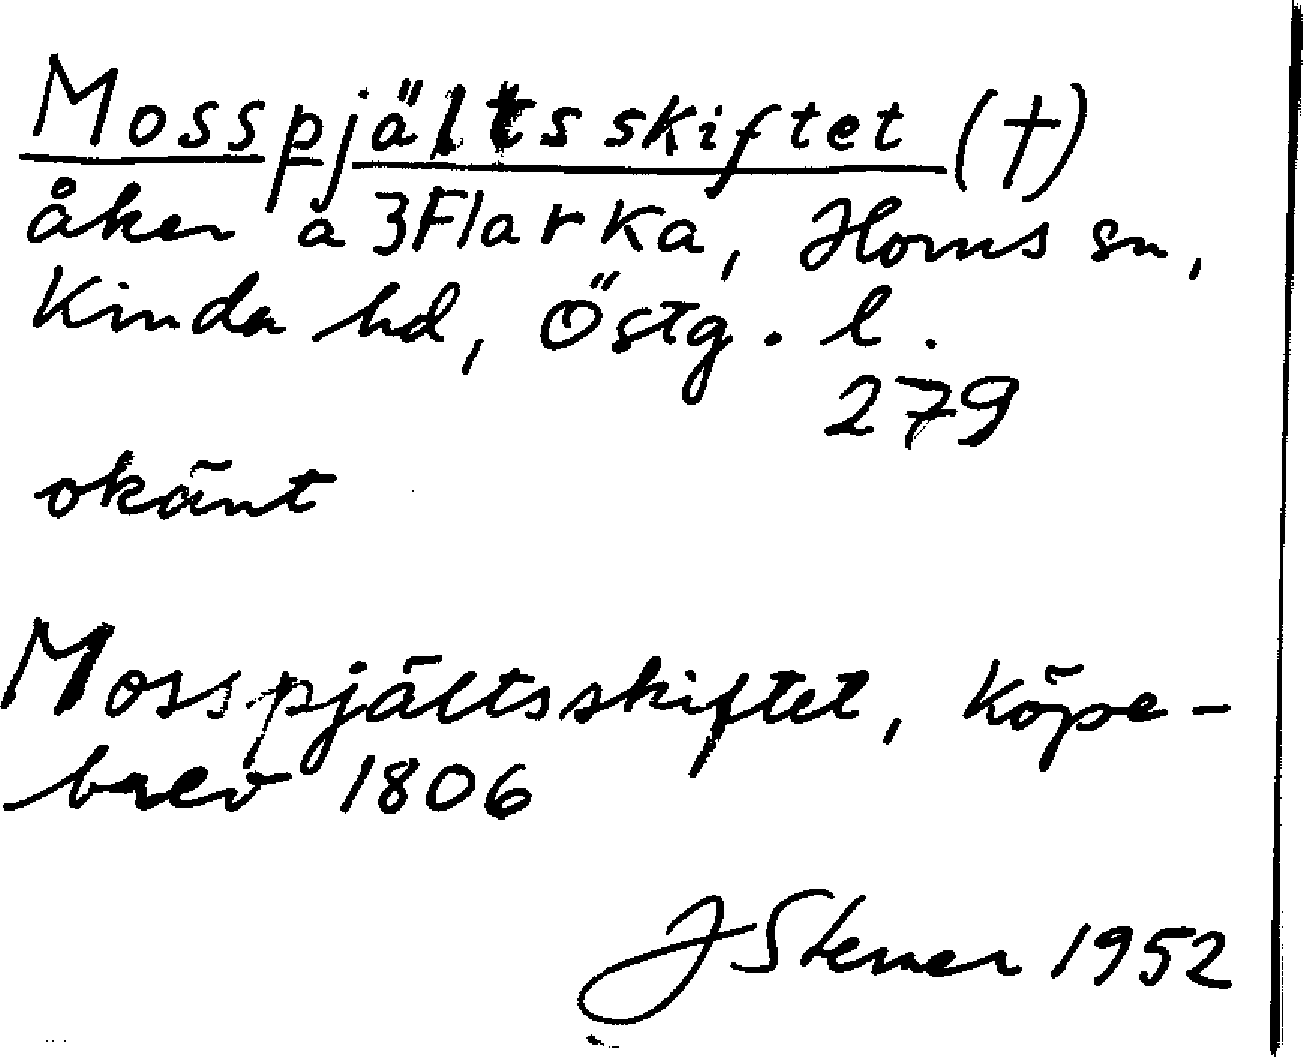 Mosspjältsskiftet (†)
åker å 3 Flarka, Horns sn,
Kinda hd, Östg. l.
279
okänt
Mosspjältsskiftet, Köpe-
brev 1806
J 1952